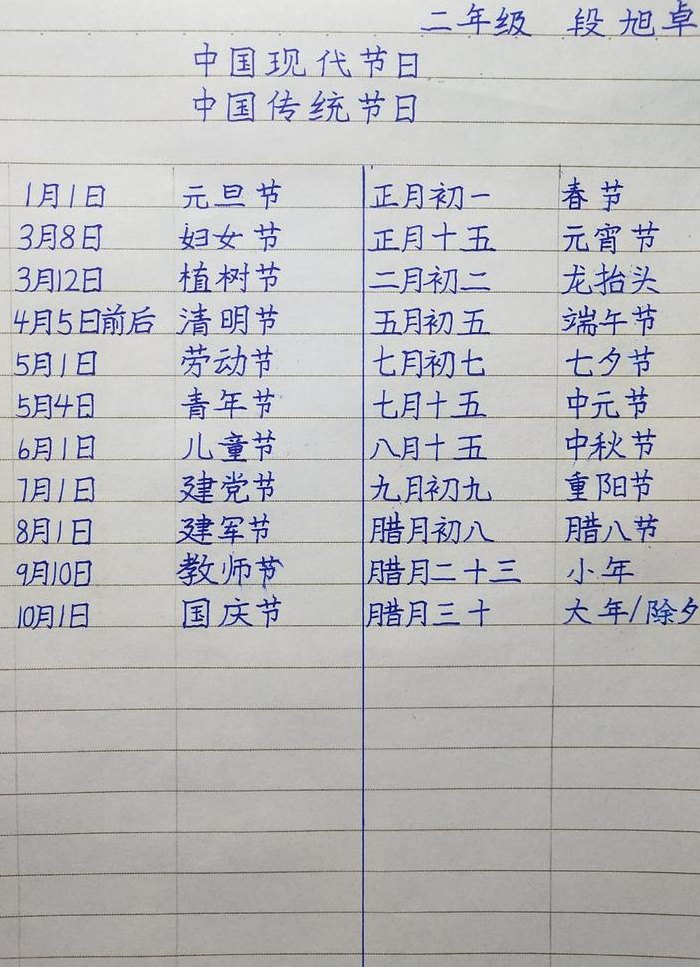 二年级 段旭卓
中国现代节日
中国传统节日
1月1日 元旦节 正月初一 春节
3月8日 妇女节 正月十五 元宵节
3月12日 植树节 二月初二 龙抬头
4月5日前后 清明节 五月初五 端午节
5月1日 劳动节 七月初七 七夕节
5月4日 青年节 七月十五 中元节
6月1日 儿童节 八月十五 中秋节
7月1日 建党节 九月初九 重阳节
8月1日 建军节 腊月初八 腊八节
9月10日 教师节 腊月二十三 小年
10月1日 国庆节 腊月三十 大年/除夕